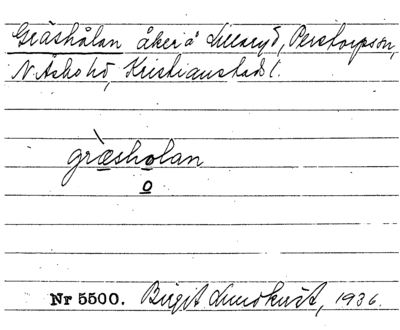 Gräshålan åker å Lillaryd, Perstorpssn,
N. Åsbo hd, Kristianstads l.
græsholan
o
Nr 5500. Birgit Lundkvist, 1936.